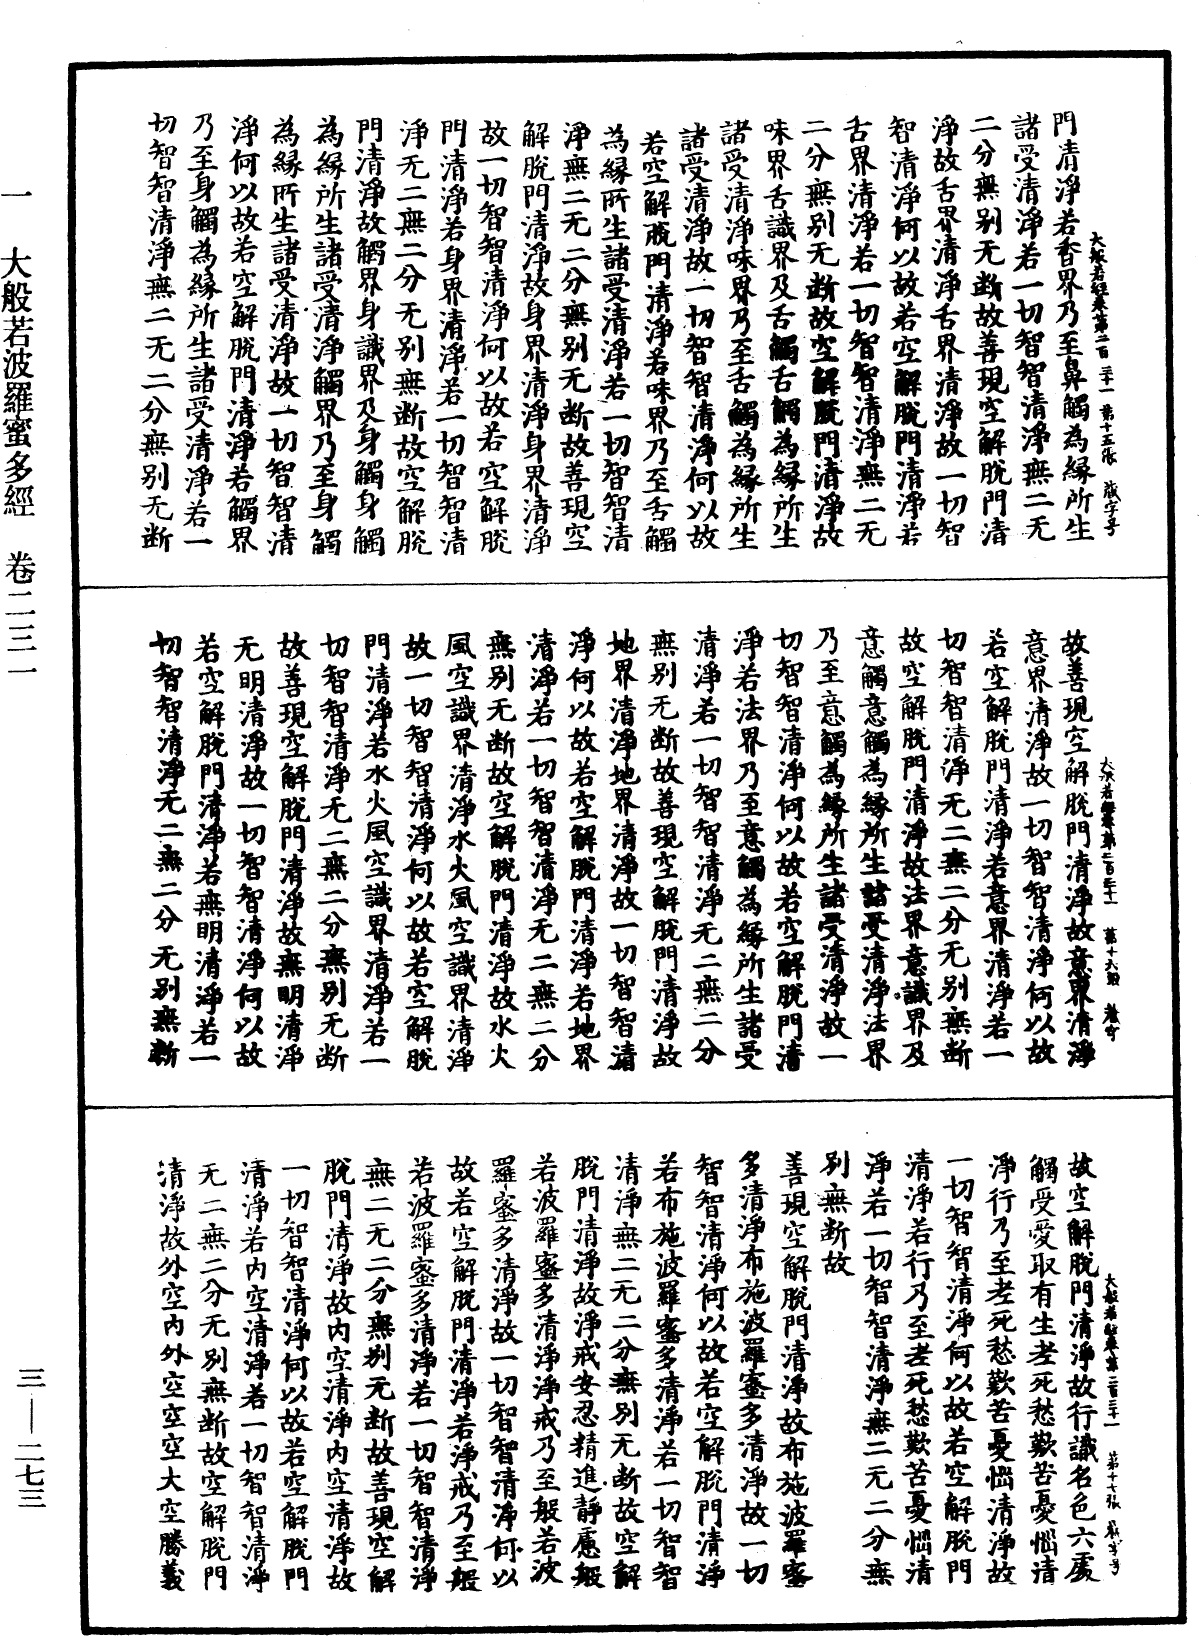 一 大般若波羅蜜多經 卷二三一
三—二七三
大般若經卷第二百三十一 第十五張 藏字号
門清淨若香界乃至鼻觸為緣所生
諸受清淨若一切智智清淨無二无
二分無別无斷故善現空解脫門清
淨故舌界清淨舌界清淨故一切智
智清淨何以故若空解脫門清淨若
舌界清淨若一切智智清淨無二无
二分無別无斷故空解脫門清淨故
味界舌識界及舌觸舌觸為緣所生
諸受清淨味界乃至舌觸為緣所生
諸受清淨故一切智智清淨何以故
若空解脫門清淨若味界乃至舌觸
為緣所生諸受清淨若一切智智清
淨無二无二分無別无斷故善現空
解脫門清淨故身界清淨身界清淨
故一切智智清淨何以故若空解脫
門清淨若身界清淨若一切智智清
淨无二無二分无別無斷故空解脫
門清淨故觸界身識界及身觸身觸
為緣所生諸受清淨觸界乃至身觸
為緣所生諸受清淨故一切智智清
淨何以故若空解脫門清淨若觸界
乃至身觸為緣所生諸受清淨若一
切智智清淨無二无二分無別无斷
大般若經卷第二百三十一 第十六張
故善現空解脫門清淨故意界清淨
意界清淨故一切智智清淨何以故
若空解脫門清淨若意界清淨若一
切智智清淨无二無二分无別無斷
故空解脫門清淨故法界意識界及
意觸意觸為緣所生諸受清淨法界
乃至意觸為緣所生諸受清淨故一
切智智清淨何以故若空解脫門清
淨若法界乃至意觸為緣所生諸受
清淨若一切智智清淨无二無二分
無別无斷故善現空解脫門清淨故
地界清淨地界清淨故一切智智清
淨何以故若空解脫門清淨若地界
清淨若一切智智清淨无二無二分
無別无斷故空解脫門清淨故水火
風空識界清淨水火風空識界清淨
故一切智智清淨何以故若空解脫
門清淨若水火風空識界清淨若一
切智智清淨无二無二分無別无斷
故善現空解脫門清淨故無明清淨
无明清淨故一切智智清淨何以故
若空解脫門清淨若無明清淨若一
切智智清淨无二無二分无別無斷
大般若經卷第二百三十一 第十七張 藏字号
故空解脫門清淨故行識名色六處
觸受愛取有生老死愁歎苦憂惱清
淨行乃至老死愁歎苦憂惱清淨故
一切智智清淨何以故若空解脫門
清淨若行乃至老死愁歎苦憂惱清
淨若一切智智清淨無二无二分無
別無斷故
善現空解脫門清淨故布施波羅蜜
多清淨布施波羅蜜多清淨故一切
智智清淨何以故若空解脫門清淨
若布施波羅蜜多清淨若一切智智
清淨無二无二分無別无斷故空解
脫門清淨故淨戒安忍精進靜慮般
若波羅蜜多清淨淨戒乃至般若波
羅蜜多清淨故一切智智清淨何以
故若空解脫門清淨若淨戒乃至般
若波羅蜜多清淨若一切智智清淨
無二无二分無別无斷故善現空解
脫門清淨故內空清淨內空清淨故
一切智智清淨何以故若空解脫門
清淨若內空清淨若一切智智清淨
无二無二分无別無斷故空解脫門
清淨故外空內外空空空大空勝義